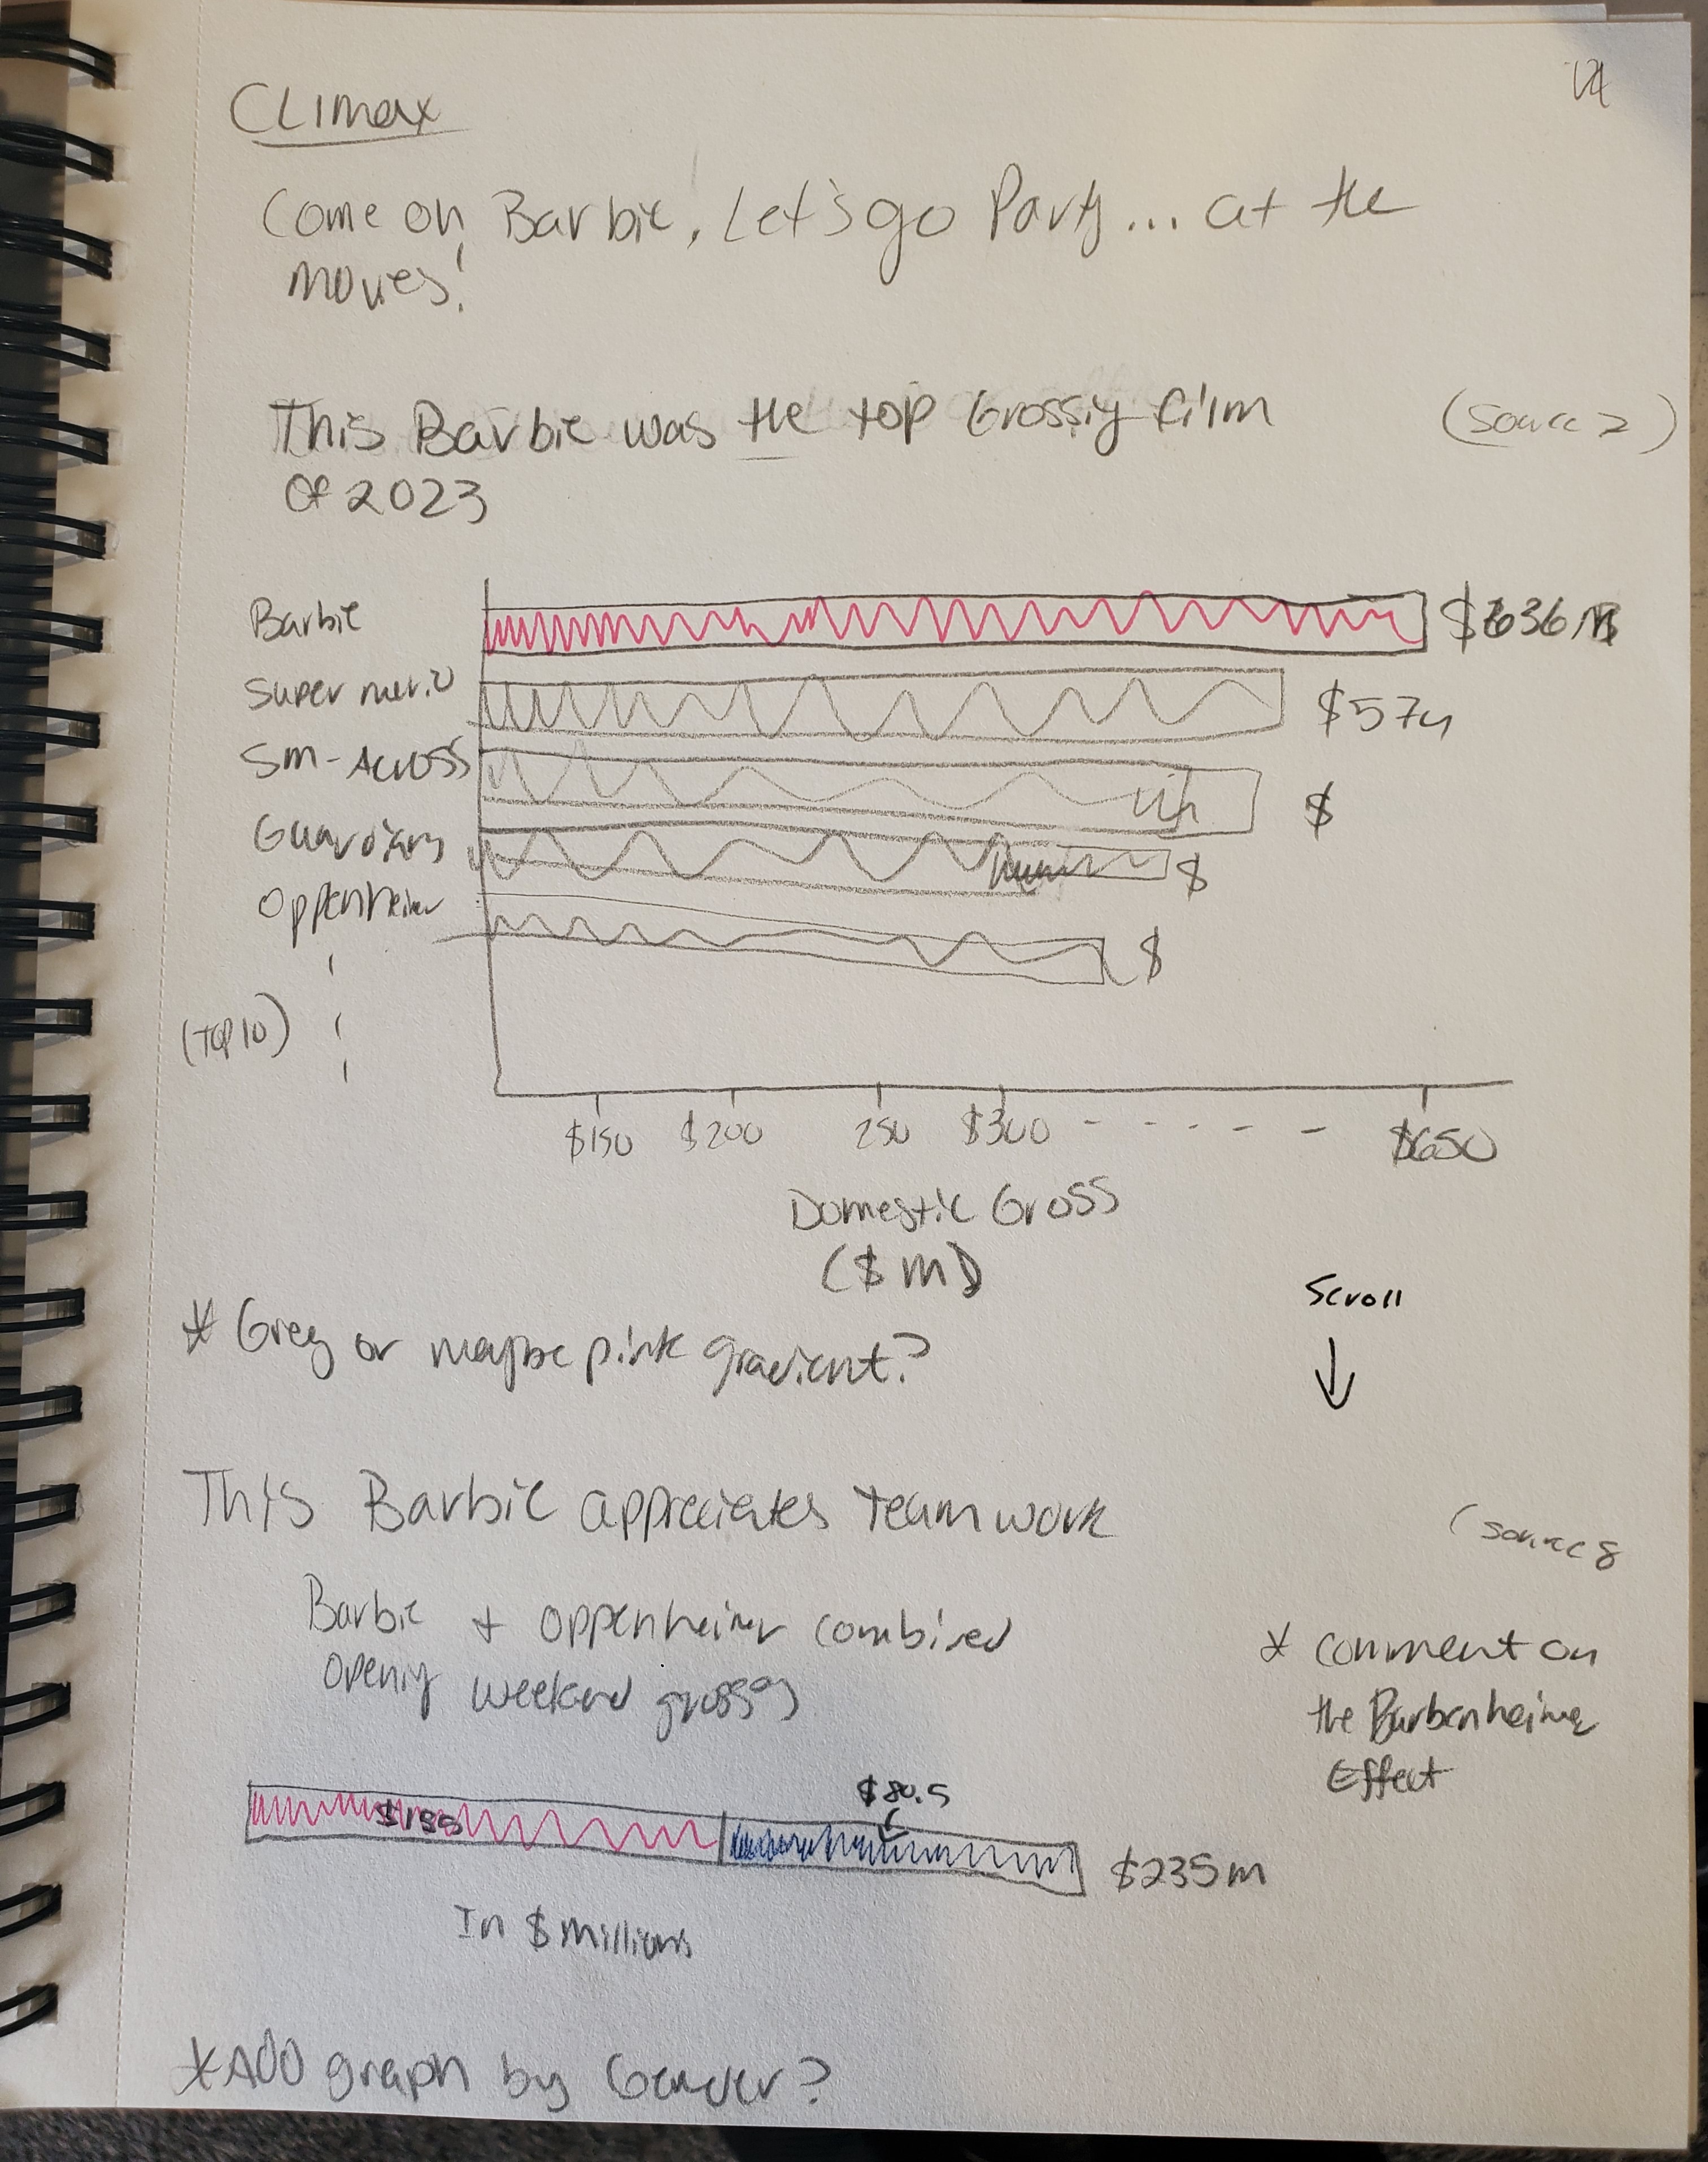 CLimax
Come on Barbie, Let's go Party... at the
movies!
This Barbie was the top Grossing film
(source 2)
of 2023
Barbie
$636M
Super mario
$574
Sm-Across
$
Guardians
$
Oppenheimer
$
(Top 10)
$150 $200 250 $300 - - - - - $650
Domestic Gross
($ m)
* Grey or maybe pink gradient?
Scroll
This Barbie appreciates teamwork
(source 8
Barbie + Oppenheimer combined
opening weekend gross
* comment on
the Barbenheimer
Effect
$80.5
$155
$235m
In $ millions
*ADD graph by Gender?